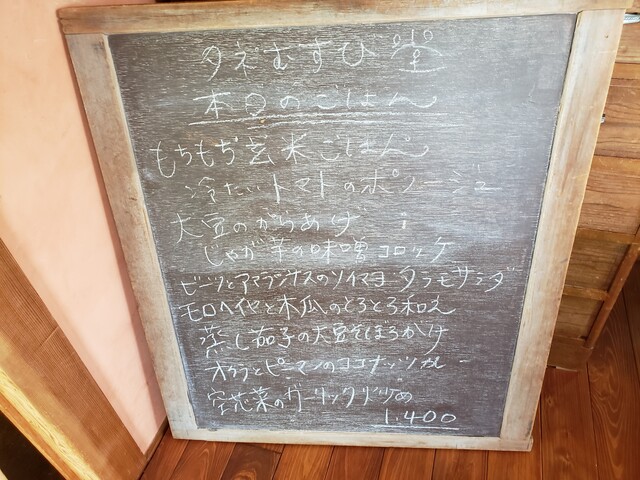 タネむすび堂
本日のごはん
もちもち玄米ごはん
冷たいトマトのポタージュ
大豆のからあげ
じゃが芋の味噌コロッケ
ビーツとアマランサスのソイマヨ タラモサラダ
モロヘイヤと木瓜のとろとろ和え
蒸し茄子の大豆そぼろかけ
オクラとピーマンのココナッツカレー
空芯菜のガーリック炒め
1.400